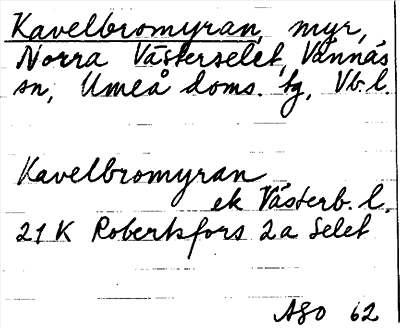 Kavelbromyran, myr,
Norra Västerselet, Vännäs
sn, Umeå doms. tg, Vb.l.
Kavelbromyran
ek Västerb. l.
21 K Robertsfors 2a Selet
ASO 62